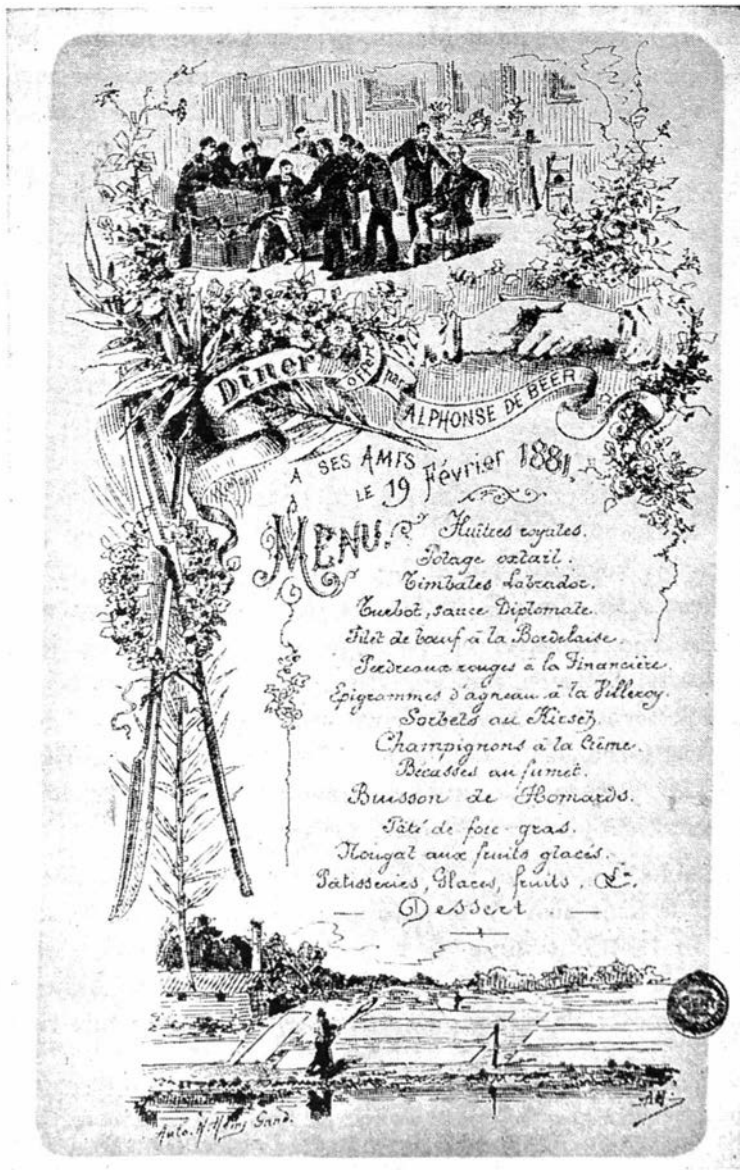 Dîner offert par
ALPHONSE DE BEER
A SES AMIS
LE 19 Février 1881.
MENU.
Huîtres royales.
Potage oxtail.
Timbales Labrador.
Turbot, sauce Diplomate.
Filet de bœuf à la Bordelaise.
Perdreaux rouges à la Financière.
Epigrammes d'agneau à la Villeroy.
Sorbets au Kirsch.
Champignons à la Crème.
Bécasses au fumet.
Buisson de Homards.
Pâté de foie gras.
Nougat aux fruits glacés.
Pâtisseries, Glaces, fruits. &.
Dessert
Gand.